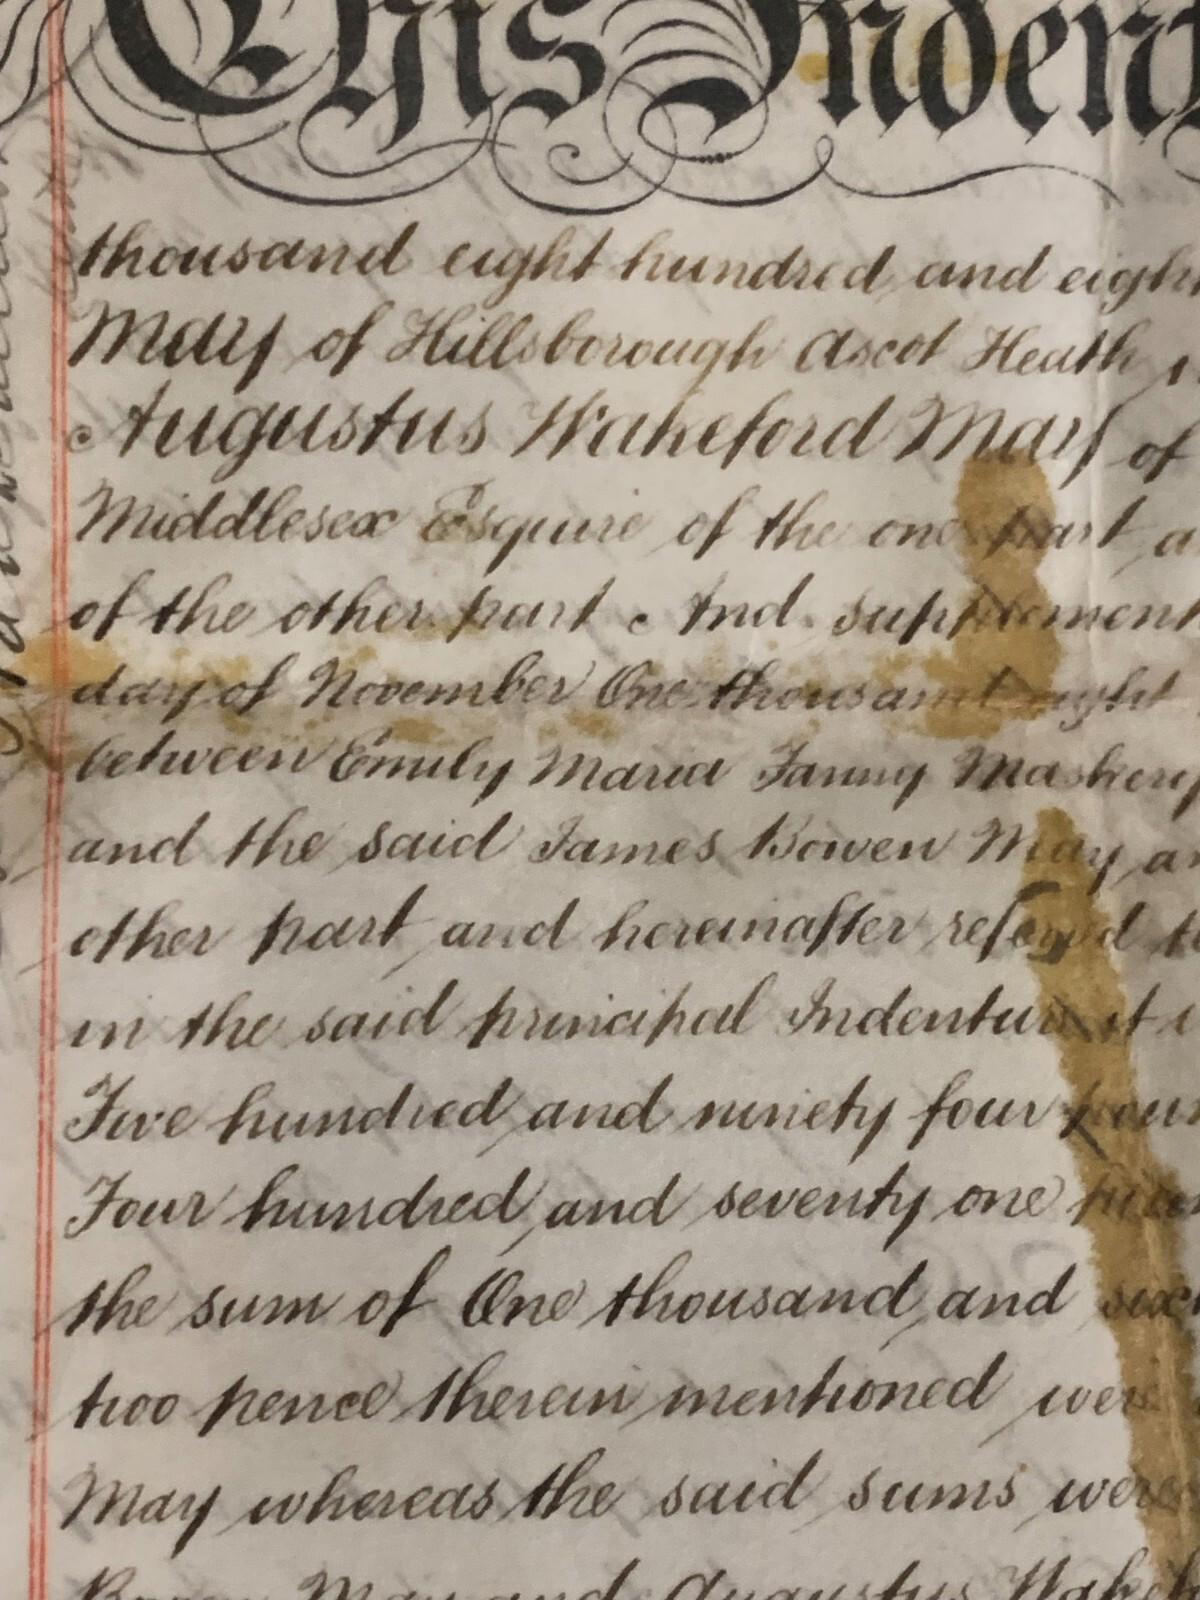 This Indent
thousand eight hundred and eigh
May of Hillsborough Ascot Heath
Augustus Wakeford May of
Middlesex Esquire of the one part a
of the other part And supplement
day of November One thousand eight
between Emily Maria Fanny Maskery
and the said James Bowen May an
other part and hereinafter referred to
in the said principal Indenture it
Five hundred and ninety four poun
Four hundred and seventy one
the sum of One thousand and six
two pence therein mentioned were
May whereas the said sums were
Bowen May and Augustus Wakef